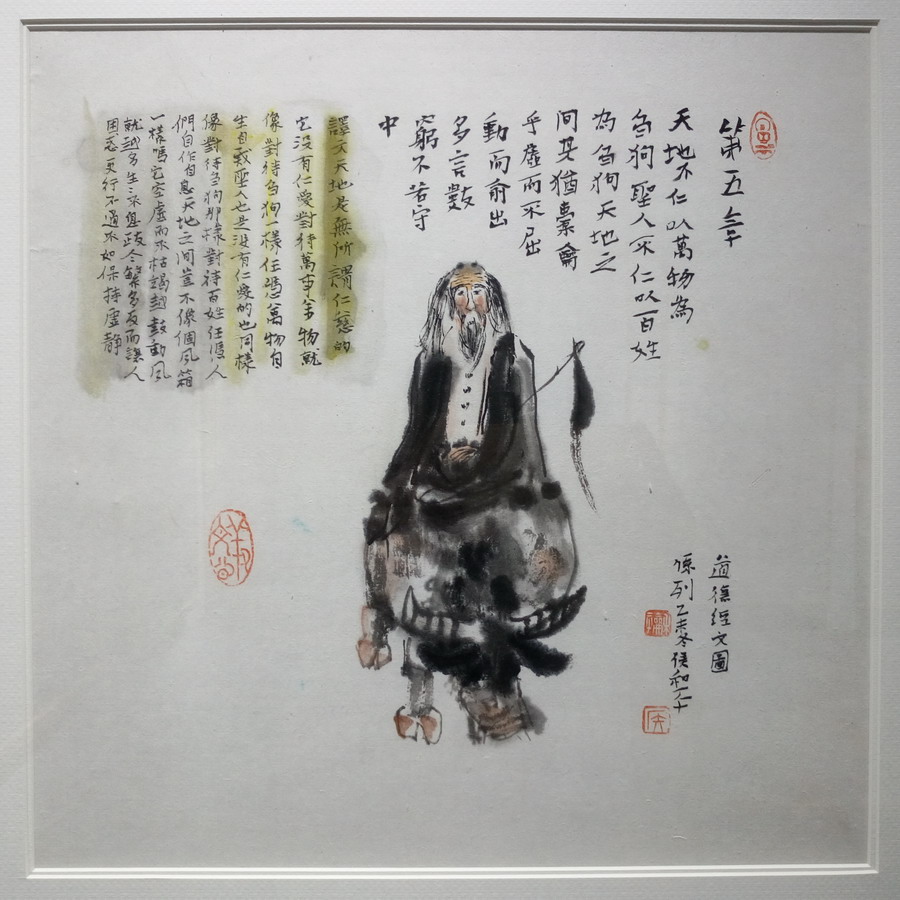 第五章
天地不仁以萬物為
芻狗聖人不仁以百姓
為芻狗天地之
間其猶橐籥
乎虛而不屈
動而俞出
多言數
窮不若守
中
譯文天地是無所謂仁慈的
它没有仁愛對待萬事万物就
像對待芻狗一樣任憑萬物自
生自滅聖人也是没有仁愛的也同樣
像對待芻狗那樣對待百姓任憑人
們自作自息天地之间豈不像個风箱
一樣嗎它空虛而不枯竭越鼓動风
就越多生生不息政令繁多反而讓人
困惑更行不通不如保持虛静
道德經文圖
系列乙未冬侯和平